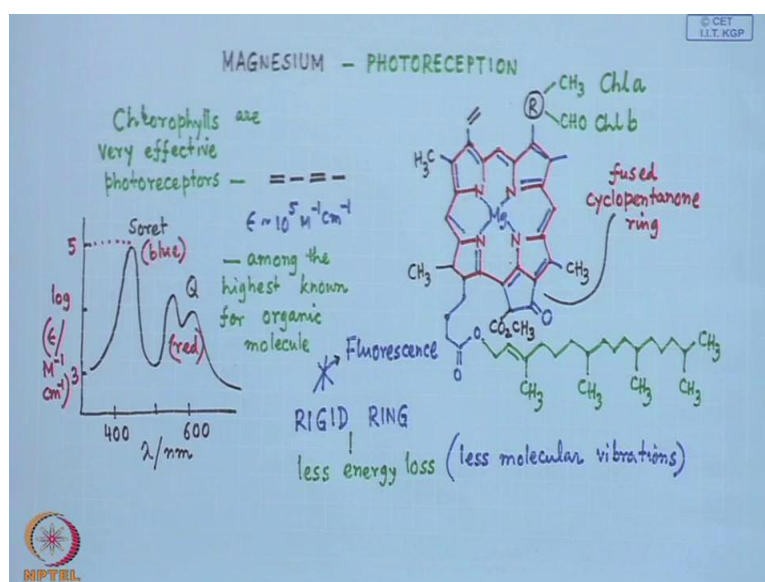 © CET
I.I.T. KGP
MAGNESIUM – PHOTORECEPTION
Chlorophylls are
very effective
photoreceptors – =–=–
ϵ ~ 10⁵ M⁻¹cm⁻¹
– among the
highest known
for organic
molecule
Soret
(blue)
Q
(red)
5
log
(ϵ/
M⁻¹
cm⁻¹)
3
400
600
λ/nm
Fluorescence
RIGID RING
less energy loss (less molecular vibrations)
R
CH₃ Chl a
CHO Chl b
H₃C
N
N
Mg
N
N
CH₃
CH₃
fused
cyclopentanone
ring
CO₂CH₃
O
O
O
CH₃
CH₃
CH₃
CH₃
CH₃
NPTEL